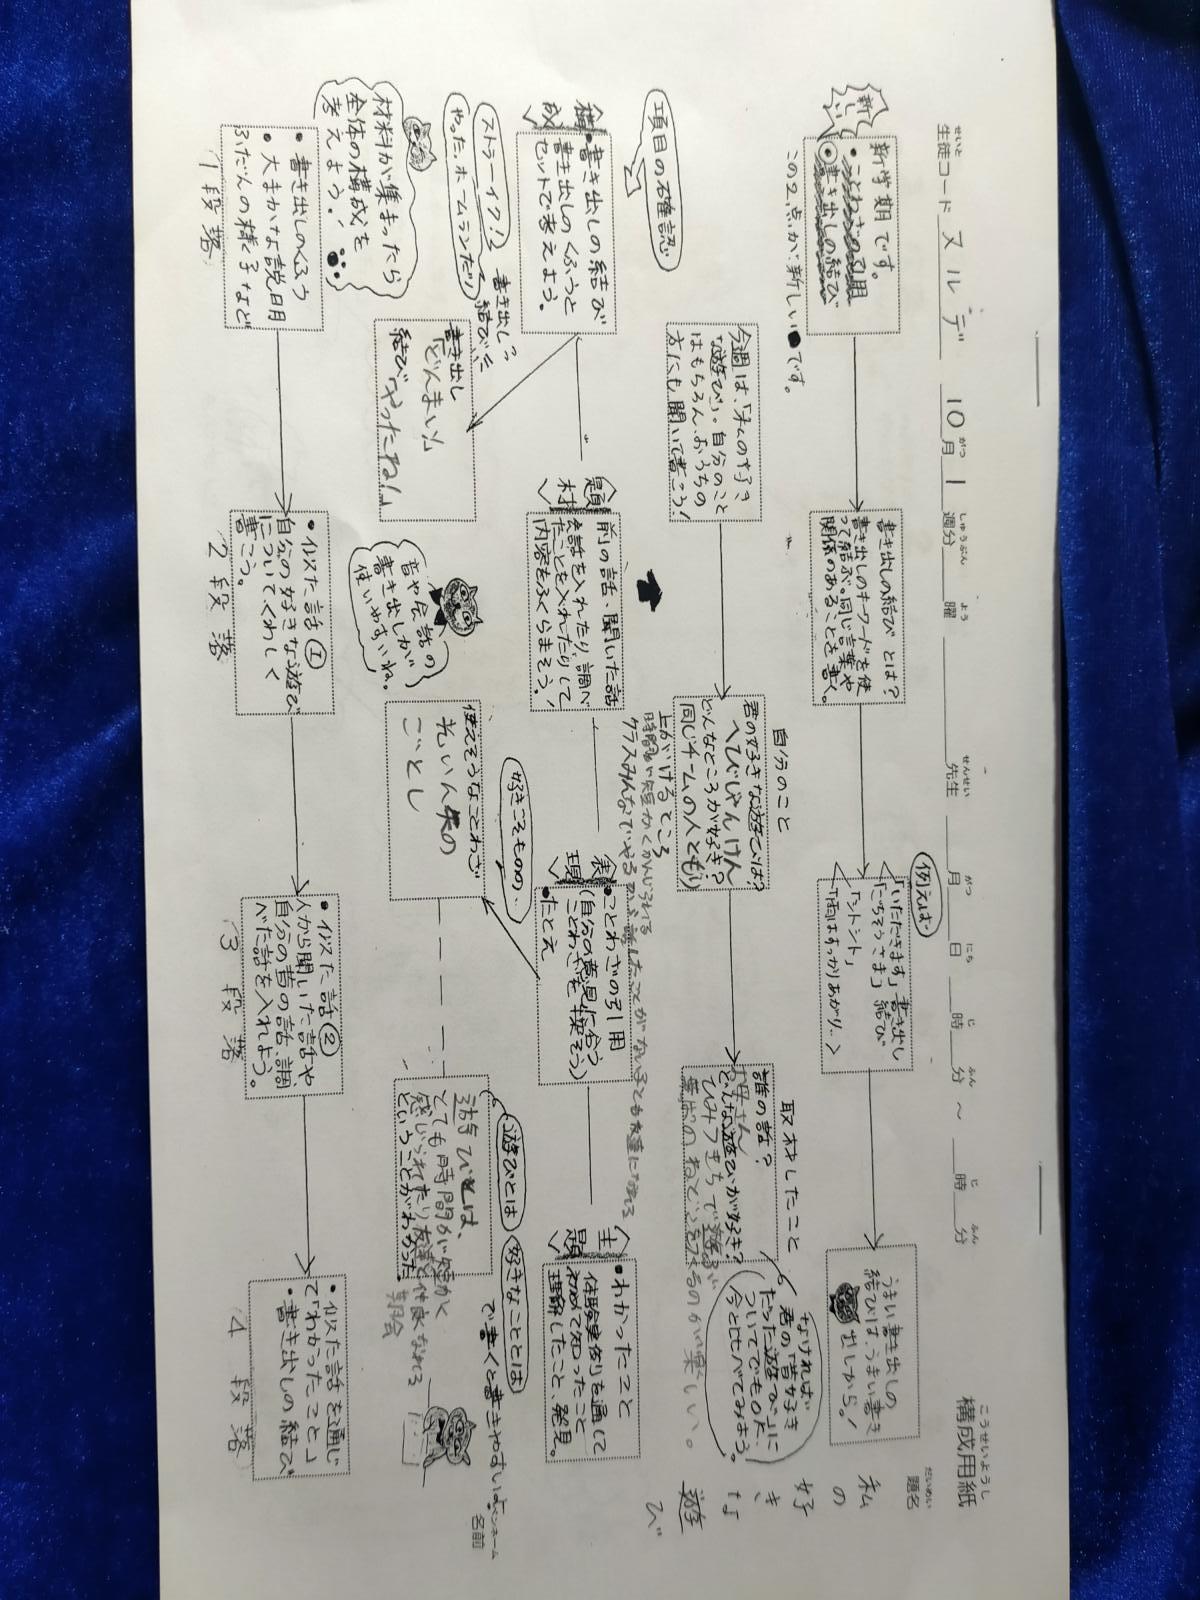 構成用紙
こうせいようし
題名
だいめい
私の好きな遊び
ペンネーム
名前
生徒コード スルデ 10月 1週分 曜 先生 月 日 時 分 ～ 時 分
せいと がつ しゅうぶん よう せんせい がつ にち じ ふん じ ふん
新しい
新学期です。
・ことわざの引用
・書き出しの結び
この2点が新しいです。
書き出しの結びとは?
書き出しのキーワードを使
って結ぶ。同じ言葉や
関係のあることを書く。
例えば
「いただきます」書き出し
「ごちそうさま」結び
「トントントン」
「雨はすっかりあがり…」
うまい書き出しの
結びは、うまい書き
出しから!
今週は、「私の好き
な遊び」。自分のこと
はもちろん、おうちの
方にも聞いて書こう!
自分のこと
君の好きな遊びは?
へびじゃんけん
どんなところが好き?
同じチームの人ともり
上がけるところ
時間が短かくかんじられる
取材したこと
誰の話?
お母さん
どんな遊びが好き?
ひみつきちで遊ぶ
のが楽しい。
なければ
君の「昔好き
だった遊び」に
ついてでもOKだ。
今と比べてみよう。
項目の確認
構成
・書き出しの結び
書き出しのくふうと
セットで考えよう。
題材
前の話、聞いた話
会話を入れたり、調べ
たことを入れたりして
内容をふくらまそう。
表現
・ことわざの引用
(自分の意見に合う
ことわざを探そう)
・たとえ
主題
・わかったこと
体験実例を通して
初めて知ったこと
理解したこと、発見。
「ストラーイク!」書き出し
「やった、ホームランだ」結び
書き出し
「どんまい」
結び「やったね!」
音や会話の
書き出しが
使いやすいね。
好きこそものの、
使えそうなことわざ
光いん矢の
ごとし
遊びとは
好きなこととは
で書くと書きやすいよ。
遊びとは、
とても時間が短かく
感じられてたり友達と仲良くなれる
ということがわかった。
材料が集まったら
全体の構成を
考えよう!
・書き出しのくふう
・大まかな説明
ふだんの様子など
1段落
・似た話①
自分の好きな遊び
についてくわしく
書こう。
2段落
・似た話②
人から聞いた話や、
自分の昔の話、調
べた話を入れよう。
3段落
・似た話を通じ
て「わかったこと」
・書き出しの結び
4段落